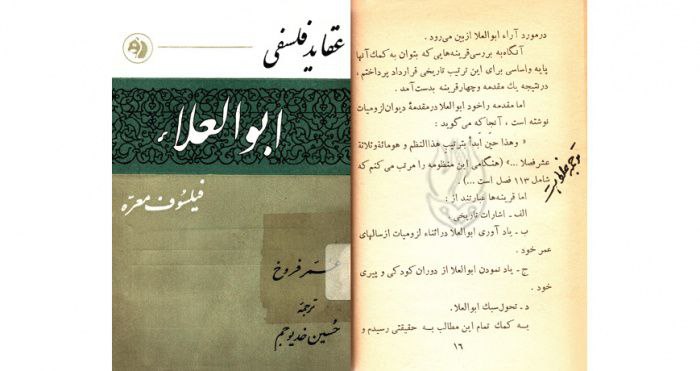 عقاید فلسفی
ابوالعلاء
فیلسوف معره
عمر فروخ
ترجمهٔ
حسین خدیوجم
درمورد آراء ابوالعلا ازبین می‌رود .
آنگاه به بررسی قرینه‌هایی که بتوان به کمك آنها
پایه واساسی برای این ترتیب تاریخی قرارداد پرداختم ،
درنتیجه یك مقدمه وچهارقرینه بدست آمد .
اما مقدمه راخود ابوالعلا درمقدمهٔ دیوان لزومیات
نوشته است ، آنجا که می گوید :
« وهذا حین ابدأ بترتیب هذاالنظم و هومائة وثلاثة
عشرفصلا ...» (هنگامی این منظومه را مرتب می کنم که
شامل ۱۱۳ فصل است ...)
اما قرینه‌ها عبارتند از :
الف ـ اشارات تاریخی.
ب ـ یاد آوری ابوالعلا دراثناء لزومیات ازسالهای
عمر خود .
ج ـ یاد نمودن ابوالعلا از دوران کودکی و پیری
خود .
د ـ تحول سبك ابوالعلا.
بـه کمك تمام این مطالب بـه حقیقتی رسیدم و
۱۶